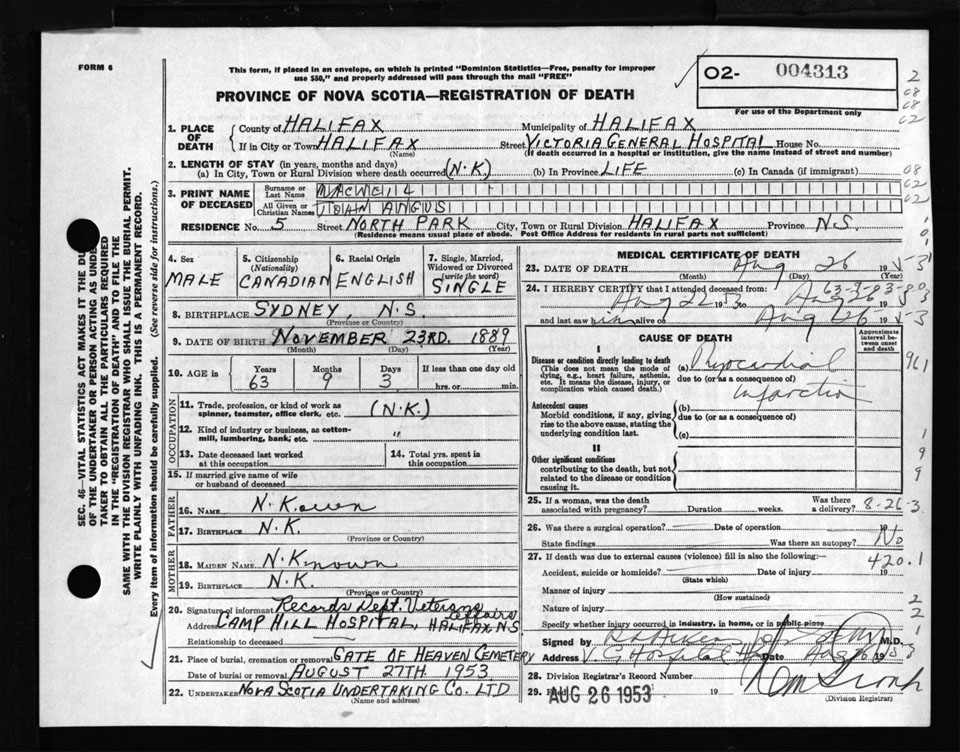 FORM 6
This form, if placed in an envelope, on which is printed "Dominion Statistics—Free, penalty for improper
use $50," and properly addressed will pass through the mail "FREE"
O2- 004313
PROVINCE OF NOVA SCOTIA—REGISTRATION OF DEATH
For use of the Department only
2
08
08
02
1. PLACE OF DEATH { County of HALIFAX Municipality of HALIFAX
If in City or Town HALIFAX Street VICTORIA GENERAL HOSPITAL House No.
(Name) (If death occurred in a hospital or institution, give the name instead of street and number)
2. LENGTH OF STAY (in years, months and days)
(a) In City, Town or Rural Division where death occurred (N.K.) (b) In Province LIFE (c) In Canada (if immigrant) 08
3. PRINT NAME OF DECEASED { Surname or Last Name MACNEIL 02
All Given or Christian Names JOHN ANGUS 02
RESIDENCE No. 5 Street NORTH PARK City, Town or Rural Division HALIFAX Province N.S.
(Residence means usual place of abode. Post Office Address for residents in rural parts not sufficient)
SEC. 46—VITAL STATISTICS ACT MAKES IT THE DU
OF THE UNDERTAKER OR PERSON ACTING AS UNDE
TAKER TO OBTAIN ALL THE PARTICULARS REQUIRED
IN THE "REGISTRATION OF DEATH" AND TO FILE THE
SAME WITH THE DIVISION REGISTRAR WHO SHALL ISSUE THE BURIAL PERMIT.
WRITE PLAINLY WITH UNFADING INK. THIS IS A PERMANENT RECORD.
Every item of information should be carefully supplied. (See reverse side for instructions.)
4. Sex
MALE
5. Citizenship
(Nationality)
CANADIAN
6. Racial Origin
ENGLISH
7. Single, Married,
Widowed or Divorced
(write the word)
SINGLE
8. BIRTHPLACE SYDNEY, N.S.
(Province or Country)
9. DATE OF BIRTH NOVEMBER 23RD. 1889
(Month) (Day) (Year)
10. AGE IN Years 63 Months 9 Days 3 If less than one day old
hrs. or min.
OCCUPATION
11. Trade, profession, or kind of work as
spinner, teamster, office clerk, etc. (N.K.)
12. Kind of industry or business, as cotton-
mill, lumbering, bank, etc. "
13. Date deceased last worked
at this occupation
14. Total yrs. spent in
this occupation
15. If married give name of wife
or husband of deceased
FATHER
16. NAME N.Known
17. BIRTHPLACE N.K.
(Province or Country)
MOTHER
18. MAIDEN NAME N.Known
19. BIRTHPLACE N.K.
(Province or Country)
20. Signature of informant Records Dept. Veterans Affairs
Address CAMP HILL HOSPITAL, HALIFAX, N.S
Relationship to deceased
21. Place of burial, cremation or removal GATE OF HEAVEN CEMETERY
Date of burial or removal AUGUST 27TH 1953
22. UNDERTAKER NOVA SCOTIA UNDERTAKING CO. LTD
(Name and address)
MEDICAL CERTIFICATE OF DEATH
23. DATE OF DEATH Aug 26 1953
(Month) (Day) (Year)
24. I HEREBY CERTIFY that I attended deceased from:
Aug 22 1953 to Aug 26 1953
and last saw him alive on Aug 26 1953
CAUSE OF DEATH
Approximate
interval between
onset
and death
I
Disease or condition directly leading to death
(This does not mean the mode of
dying, e.g., heart failure, asthenia,
etc. It means the disease, injury, or
complication which caused death.)
(a) Myocardial
due to (or as a consequence of)
infarction
961
Antecedent causes
Morbid conditions, if any, giving
rise to the above cause, stating the
underlying condition last.
(b)
due to (or as a consequence of)
(c)
1
II
Other significant conditions
contributing to the death, but not
related to the disease or condition
causing it.
9
9
25. If a woman, was the death
associated with pregnancy? Duration weeks. Was there
a delivery? 8-26-3
26. Was there a surgical operation? Date of operation
State findings Was there an autopsy? No
27. If death was due to external causes (violence) fill in also the following:—
420.1
Accident, suicide or homicide? Date of injury 19
(State which)
Manner of injury
(How sustained)
Nature of injury 2
Specify whether injury occurred in industry, in home, or in public place 2
Signed by M.D. 1
Address V.G Hospital Hfx Date Aug 26 1953
28. Division Registrar's Record Number
29. Filed AUG 26 1953 19
(Division Registrar)